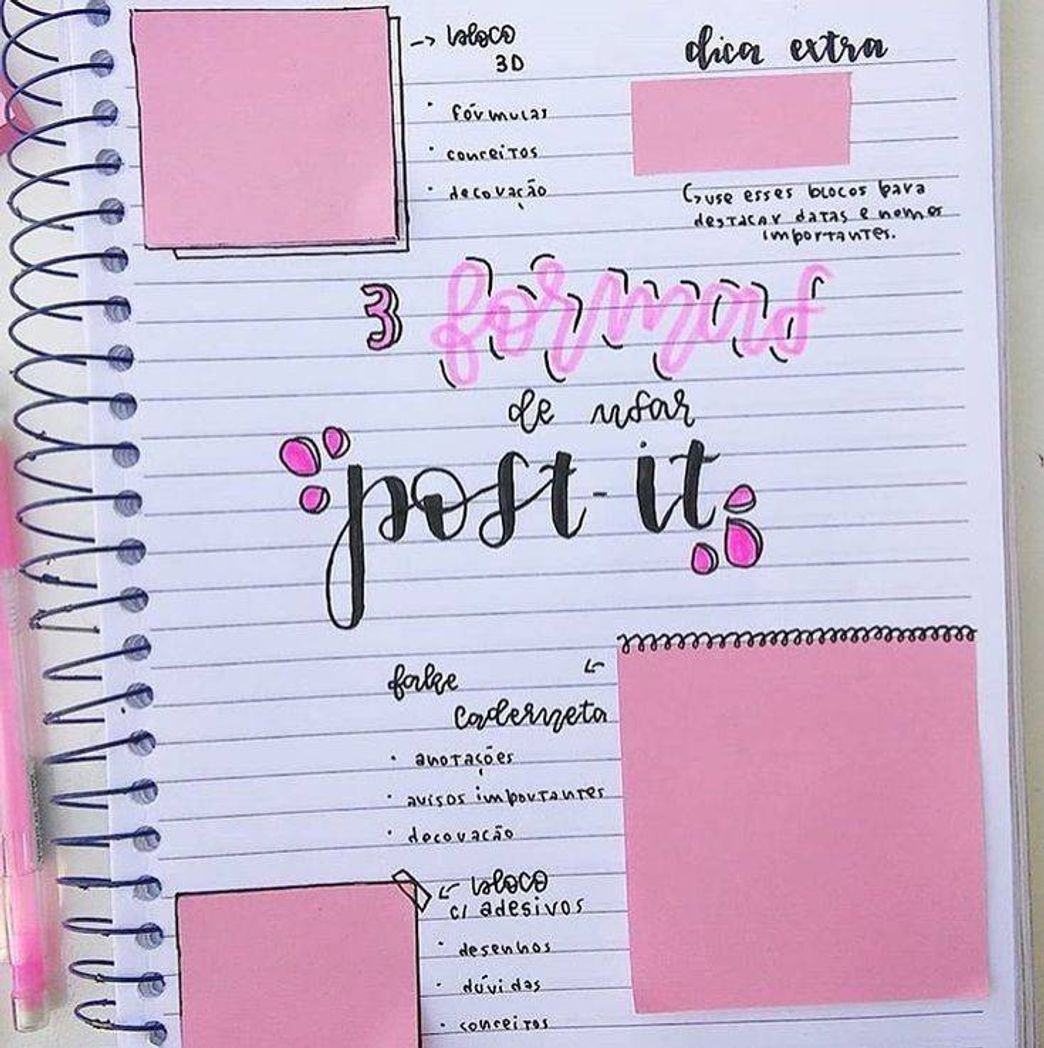 -> bloco
3D
· fórmulas
· conceitos
· decoração
dica extra
↳ use esses blocos para
destacar datas e nomes
importantes.
3 formas
de usar
post-it
fake
caderneta
· anotações
· avisos importantes
· decoração
bloco
c/ adesivos
· desenhos
· dúvidas
· conceitos